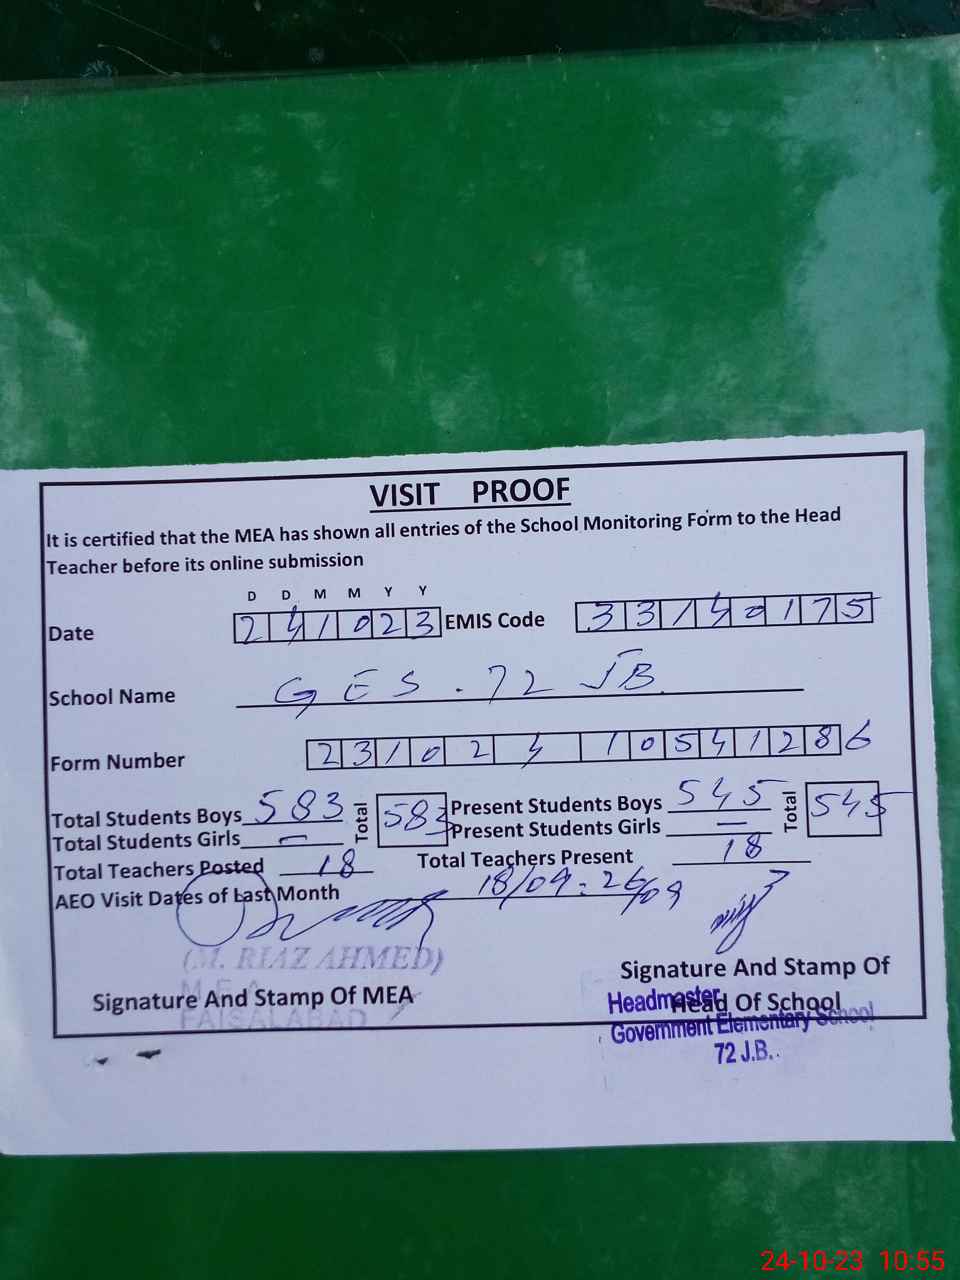 VISIT PROOF
It is certified that the MEA has shown all entries of the School Monitoring Form to the Head
Teacher before its online submission
D D M M Y Y
Date 241023 EMIS Code 33140175
School Name GES. 72 JB
Form Number 23102410541286
Total Students Boys 583 Total 583 Present Students Boys 545 Total 545
Total Students Girls — Present Students Girls —
Total Teachers Posted 18 Total Teachers Present 18
AEO Visit Dates of Last Month 18/09 . 26/09
(M. RIAZ AHMED)
M E A
FAISALABAD
Signature And Stamp Of MEA
Signature And Stamp Of
Head Of School
Headmaster
Government Elementary School
72 J.B.
24-10-23 10:55